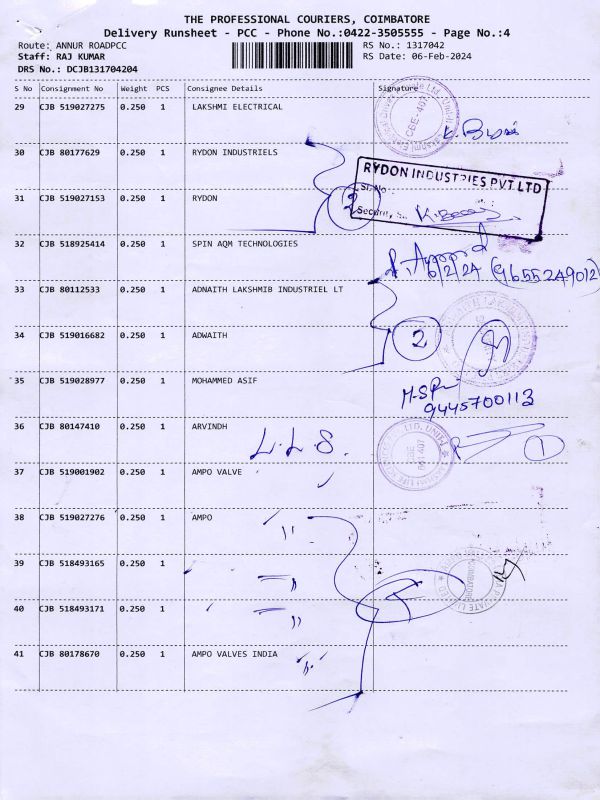 THE PROFESSIONAL COURIERS, COIMBATORE
Delivery Runsheet - PCC - Phone No.:0422-3505555 - Page No.:4
Route: ANNUR ROADPCC RS No.: 1317042
Staff: RAJ KUMAR RS Date: 06-Feb-2024
DRS No.: DCJB131704204
S No Consignment No Weight PCS Consignee Details Signature
29 CJB 519027275 0.250 1 LAKSHMI ELECTRICAL
CBE-407
30 CJB 80177629 0.250 1 RYDON INDUSTRIELS
RYDON INDUSTRIES PVT.LTD
Sl.No:
31 CJB 519027153 0.250 1 RYDON 2
Security
32 CJB 518925414 0.250 1 SPIN AQM TECHNOLOGIES
6/2/24 (9655249012)
33 CJB 80112533 0.250 1 ADNAITH LAKSHMIB INDUSTRIEL LT
34 CJB 519016682 0.250 1 ADWAITH 2
35 CJB 519028977 0.250 1 MOHAMMED ASIF
9445700113
36 CJB 80147410 0.250 1 ARVINDH L.L.S. 1
37 CJB 519001902 0.250 1 AMPO VALVE
38 CJB 519027276 0.250 1 AMPO
39 CJB 518493165 0.250 1
40 CJB 518493171 0.250 1
41 CJB 80178670 0.250 1 AMPO VALVES INDIA